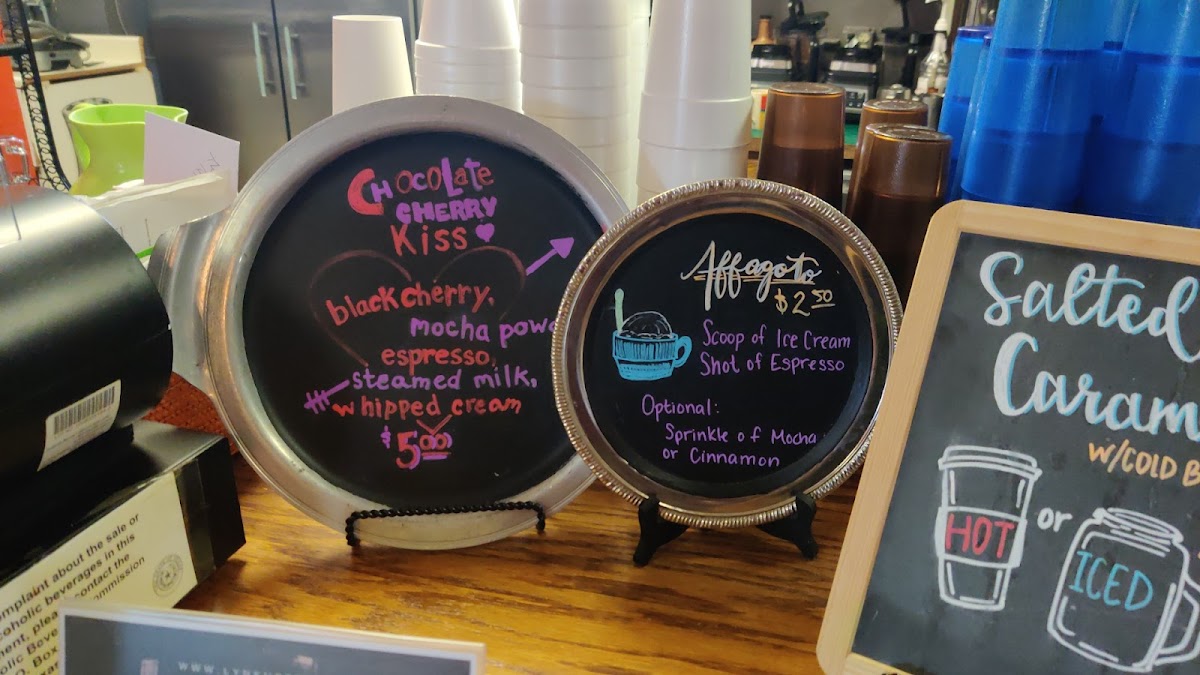 Chocolate
Cherry
Kiss
black cherry,
mocha powd
espresso,
steamed milk,
whipped cream
$5.00
Affagoto
$2.50
Scoop of Ice Cream
Shot of Espresso
Optional:
Sprinkle of Mocha
or Cinnamon
Salted
Caram
W/COLD B
HOT
or
ICED
omplaint about the sale or
coholic beverages in this
ment, please contact the
olic Beve mmission
O. Box